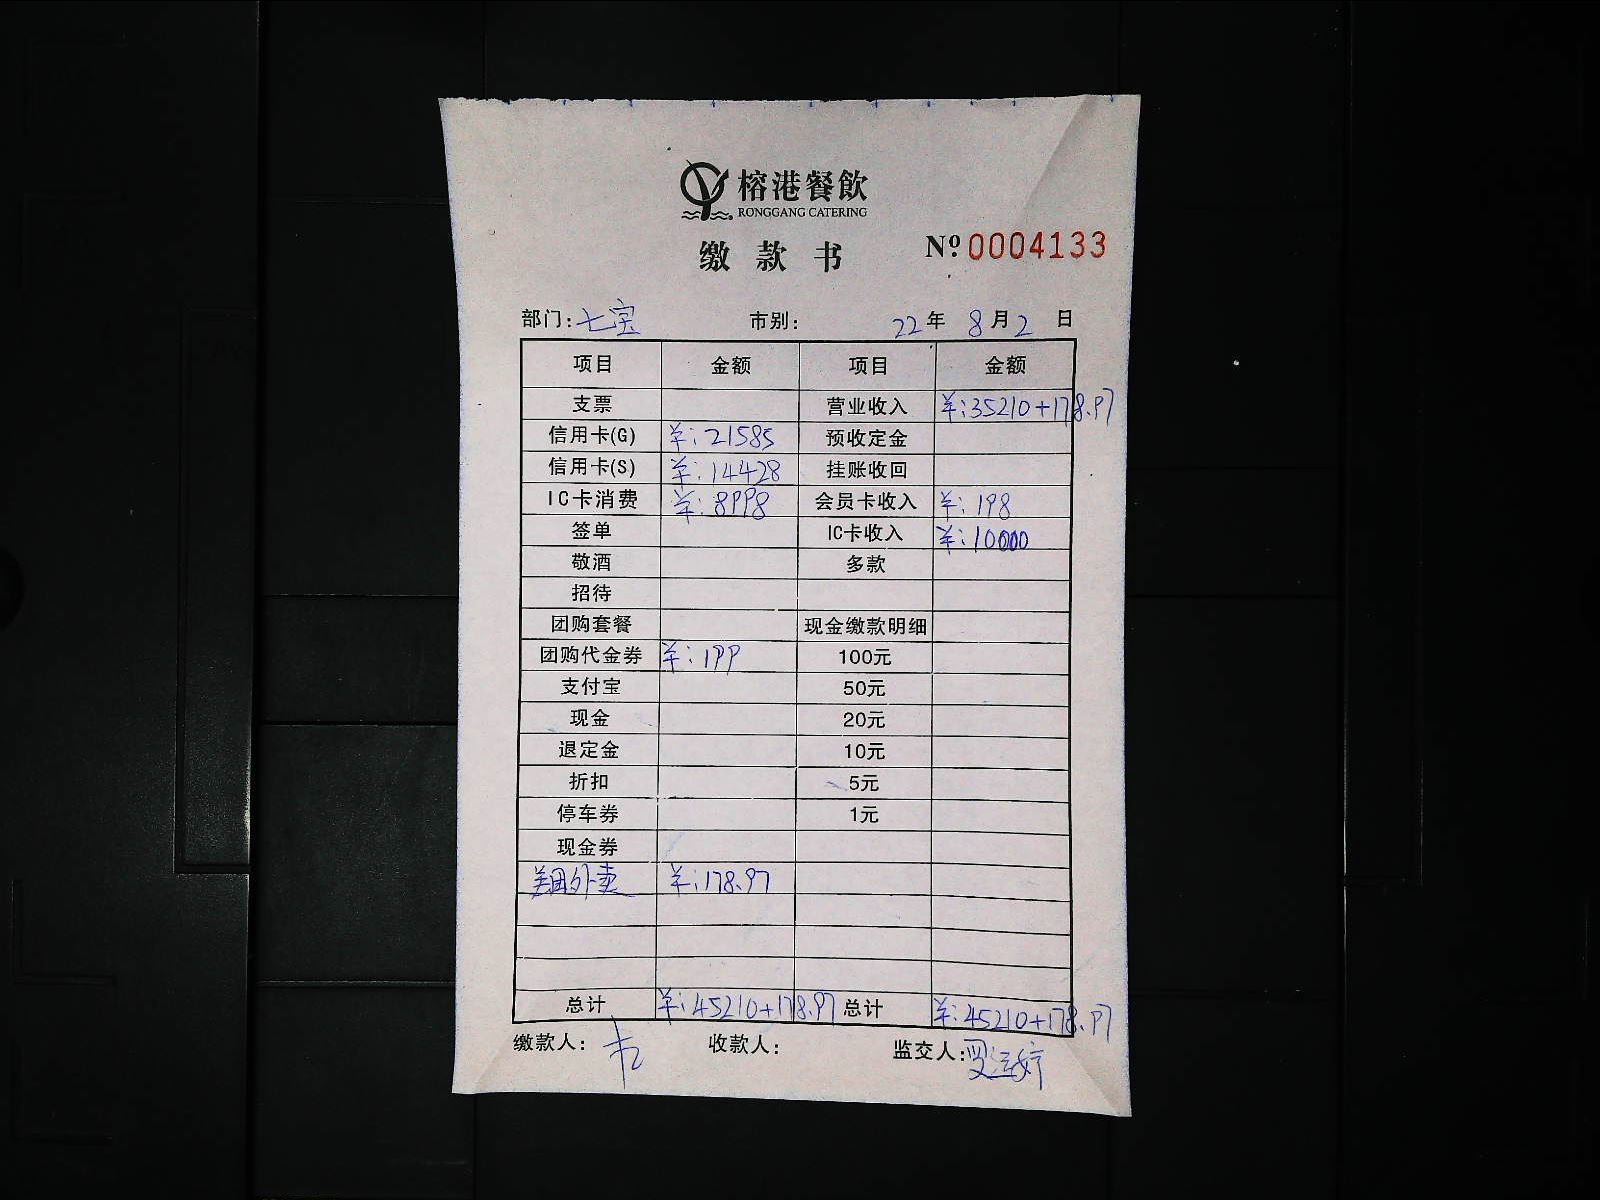 榕港餐飲
RONGGANG CATERING
缴款书 Nº 0004133
部门:七宝 市别: 22年 8月2日
项目 金额 项目 金额
支票 营业收入 ¥:35210+178.97
信用卡(G) ¥:21585 预收定金
信用卡(S) ¥:14428 挂账收回
IC卡消费 ¥:8998 会员卡收入 ¥:198
签单 IC卡收入 ¥:10000
敬酒 多款
招待
团购套餐 现金缴款明细
团购代金券 ¥:199 100元
支付宝 50元
现金 20元
退定金 10元
折扣 5元
停车券 1元
现金券
美团外卖 ¥:178.97
总计 ¥:45210+178.97 总计 ¥:45210+178.97
缴款人: 收款人: 监交人: